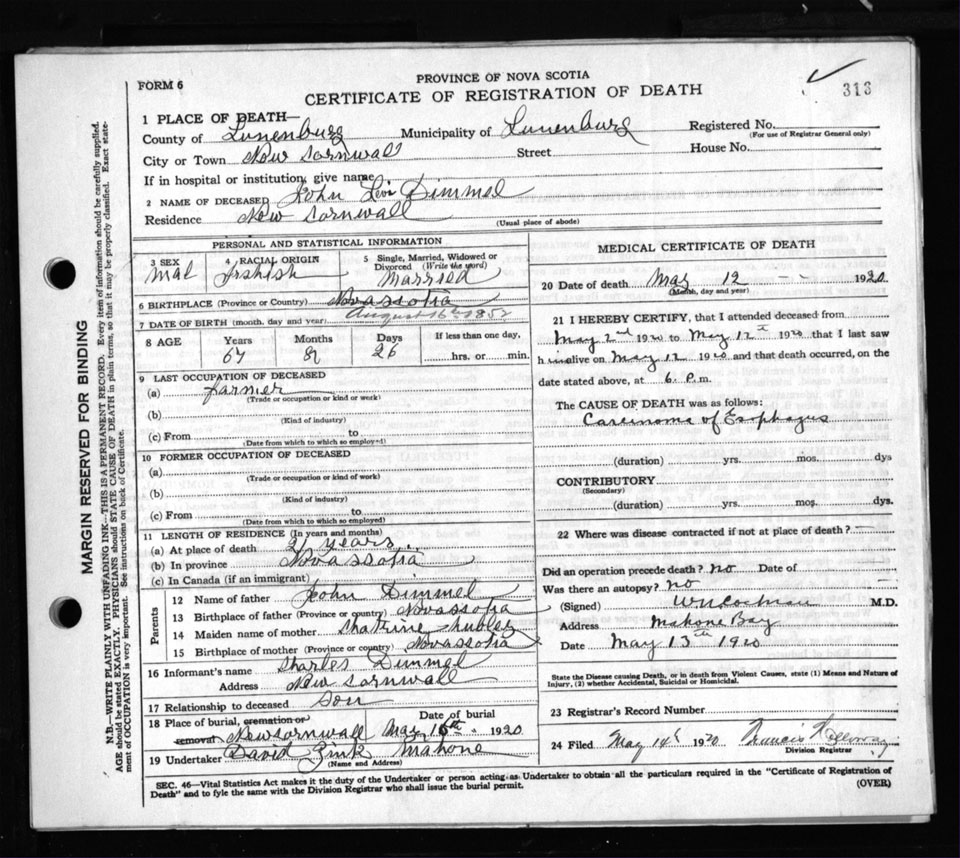 PROVINCE OF NOVA SCOTIA
FORM 6
CERTIFICATE OF REGISTRATION OF DEATH
313
1 PLACE OF DEATH—
County of Lunenburg Municipality of Lunenburg Registered No.
(For use of Registrar General only)
City or Town New Cornwall Street House No.
If in hospital or institution, give name
2 NAME OF DECEASED John Levi Dimmel
Residence New Cornwall
(Usual place of abode)
PERSONAL AND STATISTICAL INFORMATION
3 SEX Mal
4 RACIAL ORIGIN
5 Single, Married, Widowed or Divorced (Write the word)
Married
6 BIRTHPLACE (Province or Country) Nova ssotia
7 DATE OF BIRTH (month, day and year) August 16th 1852
8 AGE Years Months Days If less than one day,
67 8 26 hrs. or min.
9 LAST OCCUPATION OF DECEASED
(a) Farmer
(Trade or occupation or kind of work)
(b)
(Kind of industry)
(c) From to
(Date from which to which so employed)
10 FORMER OCCUPATION OF DECEASED
(a)
(Trade or occupation or kind of work)
(b)
(Kind of industry)
(c) From to
(Date from which to which so employed)
11 LENGTH OF RESIDENCE (In years and months)
(a) At place of death years
(b) In province Nova ssotia
(c) In Canada (if an immigrant)
Parents
12 Name of father John Dimmel
13 Birthplace of father (Province or country) Nova ssotia
14 Maiden name of mother
15 Birthplace of mother (Province or country) Nova ssotia
16 Informant's name Charles Dimmel
Address New Cornwall
17 Relationship to deceased Son
18 Place of burial, cremation or removal New Cornwall
Date of burial May 16th 1920
19 Undertaker David Zink Mahone
(Name and Address)
MEDICAL CERTIFICATE OF DEATH
20 Date of death May 12 1920
(Month, day and year)
21 I HEREBY CERTIFY, that I attended deceased from
May 2nd 1920 to May 12th 1920 that I last saw
h im alive on May 12 1920 and that death occurred, on the
date stated above, at 6. P.m.
The CAUSE OF DEATH was as follows:
Carcinoma of Esophagus
(duration) yrs. mos. dys
CONTRIBUTORY
(Secondary)
(duration) yrs. mos. dys.
22 Where was disease contracted if not at place of death?
Did an operation precede death? No Date of
Was there an autopsy? No
(Signed) M.D.
Address Mahone Bay
Date May 13th 1920
State the Disease causing Death, or in death from Violent Causes, state (1) Means and Nature of
Injury, (2) whether Accidental, Suicidal or Homicidal.
23 Registrar's Record Number
24 Filed May 14th 1920 Francis
Division Registrar
SEC. 46—Vital Statistics Act makes it the duty of the Undertaker or person acting as Undertaker to obtain all the particulars required in the "Certificate of Registration of
Death" and to fyle the same with the Division Registrar who shall issue the burial permit.
(OVER)
MARGIN RESERVED FOR BINDING
N.B.—WRITE PLAINLY WITH UNFADING INK—THIS IS A PERMANENT RECORD. Every item of information should be carefully supplied.
AGE should be stated EXACTLY. PHYSICIANS should STATE CAUSE OF DEATH in plain terms, so that it may be properly classified. Exact state-
ment of OCCUPATION is very important. See instructions on back of Certificate.